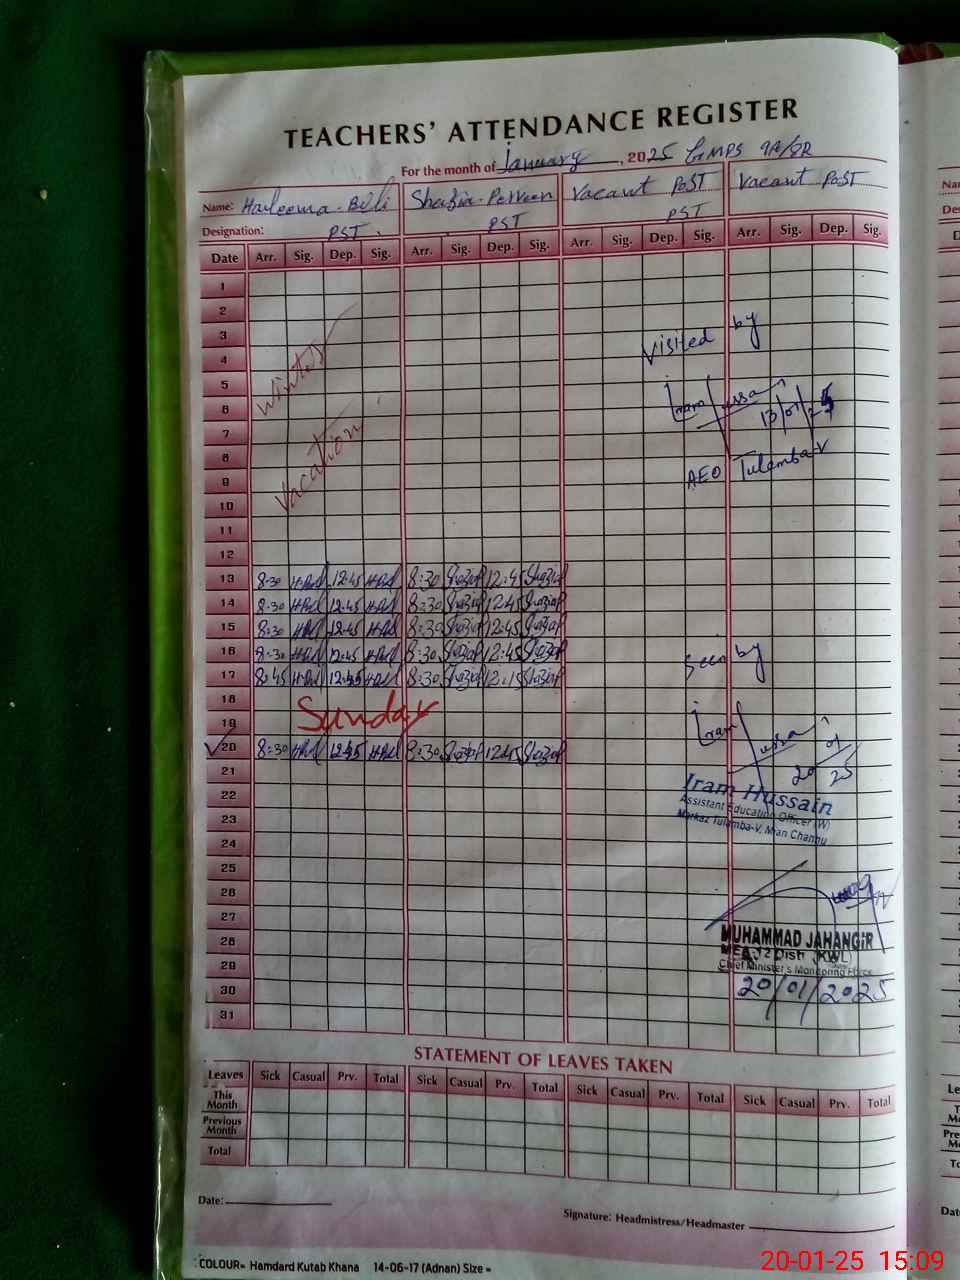 TEACHERS' ATTENDANCE REGISTER
For the month of January, 2025 GMPS 9A/8R
Name: Haleema Bibi Shazia Perveen Vacant Post Vacant Post
Designation: PST PST PST
Date Arr. Sig. Dep. Sig. Arr. Sig. Dep. Sig. Arr. Sig. Dep. Sig. Arr. Sig. Dep. Sig.
1
2
3
Visited by
4
5
Winter
6
Iram Hussain
13/01/25
7
8
Vacation
AEO Tulamba-V
9
10
11
12
13 8:30 12:45 8:30 12:45
14 8:30 12:45 8:30 12:45
15 8:30 12:45 8:30 12:45
16 8:30 12:45 8:30 12:45
Seen by
17 8:45 12:45 8:30 12:15
18
Sunday
19
Iram Hussain
20 8:30 12:45 8:30 12:45
20 01 25
21
22
Iram Hussain
Assistant Education Officer (W)
Markaz Tulamba-V, Mian Channu
23
24
25
26
27
28
MUHAMMAD JAHANGIR
MEA 12 Distt (KWL)
Chief Minister's Monitoring Force
29
30
20/01/2025
31
STATEMENT OF LEAVES TAKEN
Leaves Sick Casual Prv. Total Sick Casual Prv. Total Sick Casual Prv. Total Sick Casual Prv. Total
This Month
Previous Month
Total
Date:
Signature: Headmistress/Headmaster
COLOUR= Hamdard Kutab Khana 14-06-17 (Adnan) Size =
20-01-25 15:09